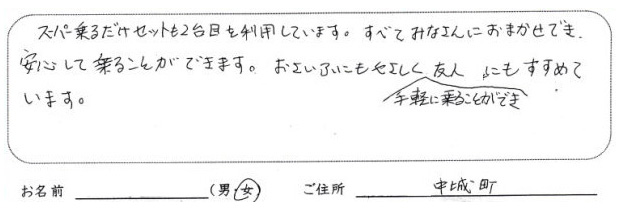 スーパー乗るだけセットも2台目を利用しています。すべてみなさんにおまかせでき、
安心して乗ることができます。おさいふにもやさしく 友人 にもすすめて
手軽に乗ることができ
います。
お名前 (男・女) ご住所 中城町